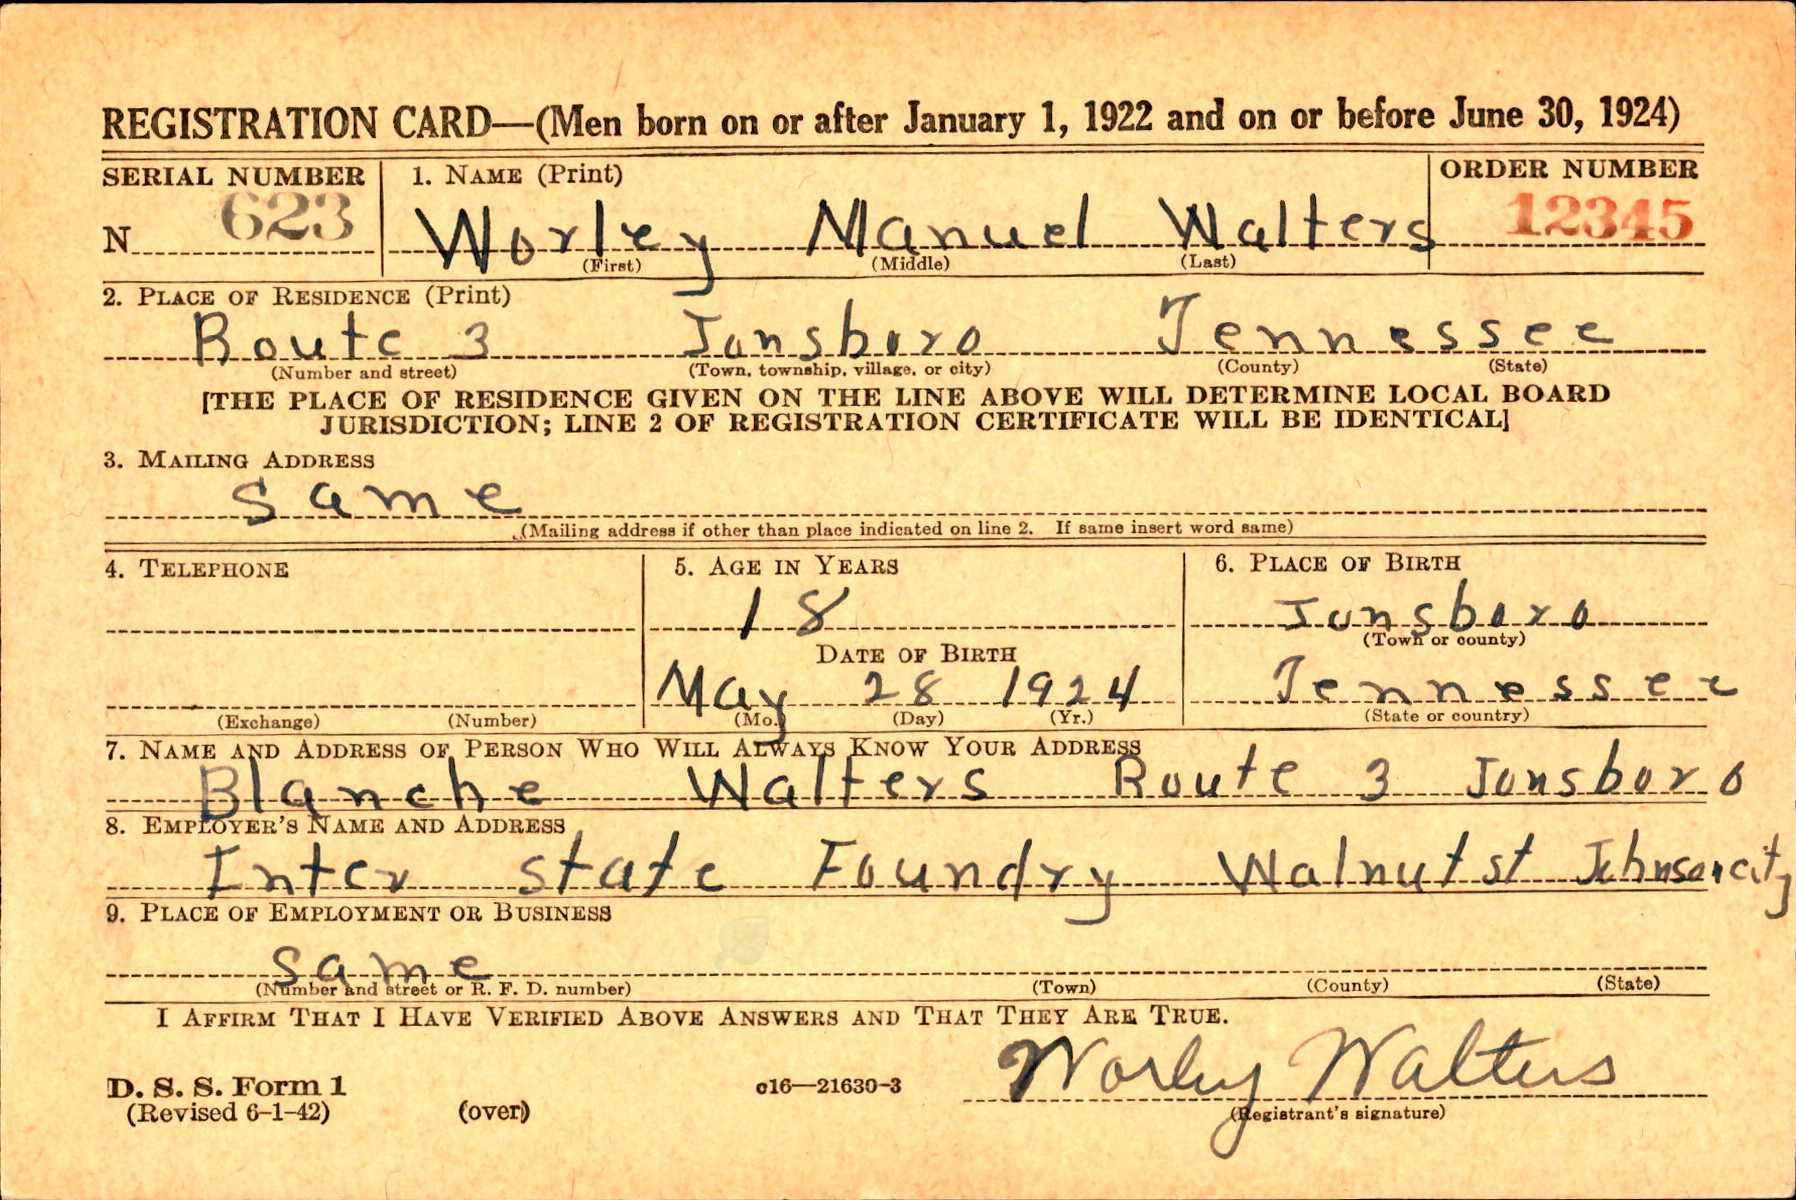 REGISTRATION CARD—(Men born on or after January 1, 1922 and on or before June 30, 1924)
SERIAL NUMBER 1. NAME (Print) ORDER NUMBER
N 623 Worley Manuel Walters 12345
(First) (Middle) (Last)
2. PLACE OF RESIDENCE (Print)
Route 3 Jonsboro Tennessee
(Number and street) (Town, township, village, or city) (County) (State)
[THE PLACE OF RESIDENCE GIVEN ON THE LINE ABOVE WILL DETERMINE LOCAL BOARD
JURISDICTION; LINE 2 OF REGISTRATION CERTIFICATE WILL BE IDENTICAL]
3. MAILING ADDRESS
Same
(Mailing address if other than place indicated on line 2. If same insert word same)
4. TELEPHONE 5. AGE IN YEARS 6. PLACE OF BIRTH
18 Jonsboro
(Town or county)
DATE OF BIRTH
May 28 1924 Tennessee
(Exchange) (Number) (Mo.) (Day) (Yr.) (State or country)
7. NAME AND ADDRESS OF PERSON WHO WILL ALWAYS KNOW YOUR ADDRESS
Blanche Walters Route 3 Jonsboro
8. EMPLOYER'S NAME AND ADDRESS
Inter state Foundry Walnut st Johnson city
9. PLACE OF EMPLOYMENT OR BUSINESS
same
(Number and street or R. F. D. number) (Town) (County) (State)
I AFFIRM THAT I HAVE VERIFIED ABOVE ANSWERS AND THAT THEY ARE TRUE.
Worley Walters
D. S. S. Form 1 c16—21630-3
(Revised 6-1-42) (over) (Registrant's signature)